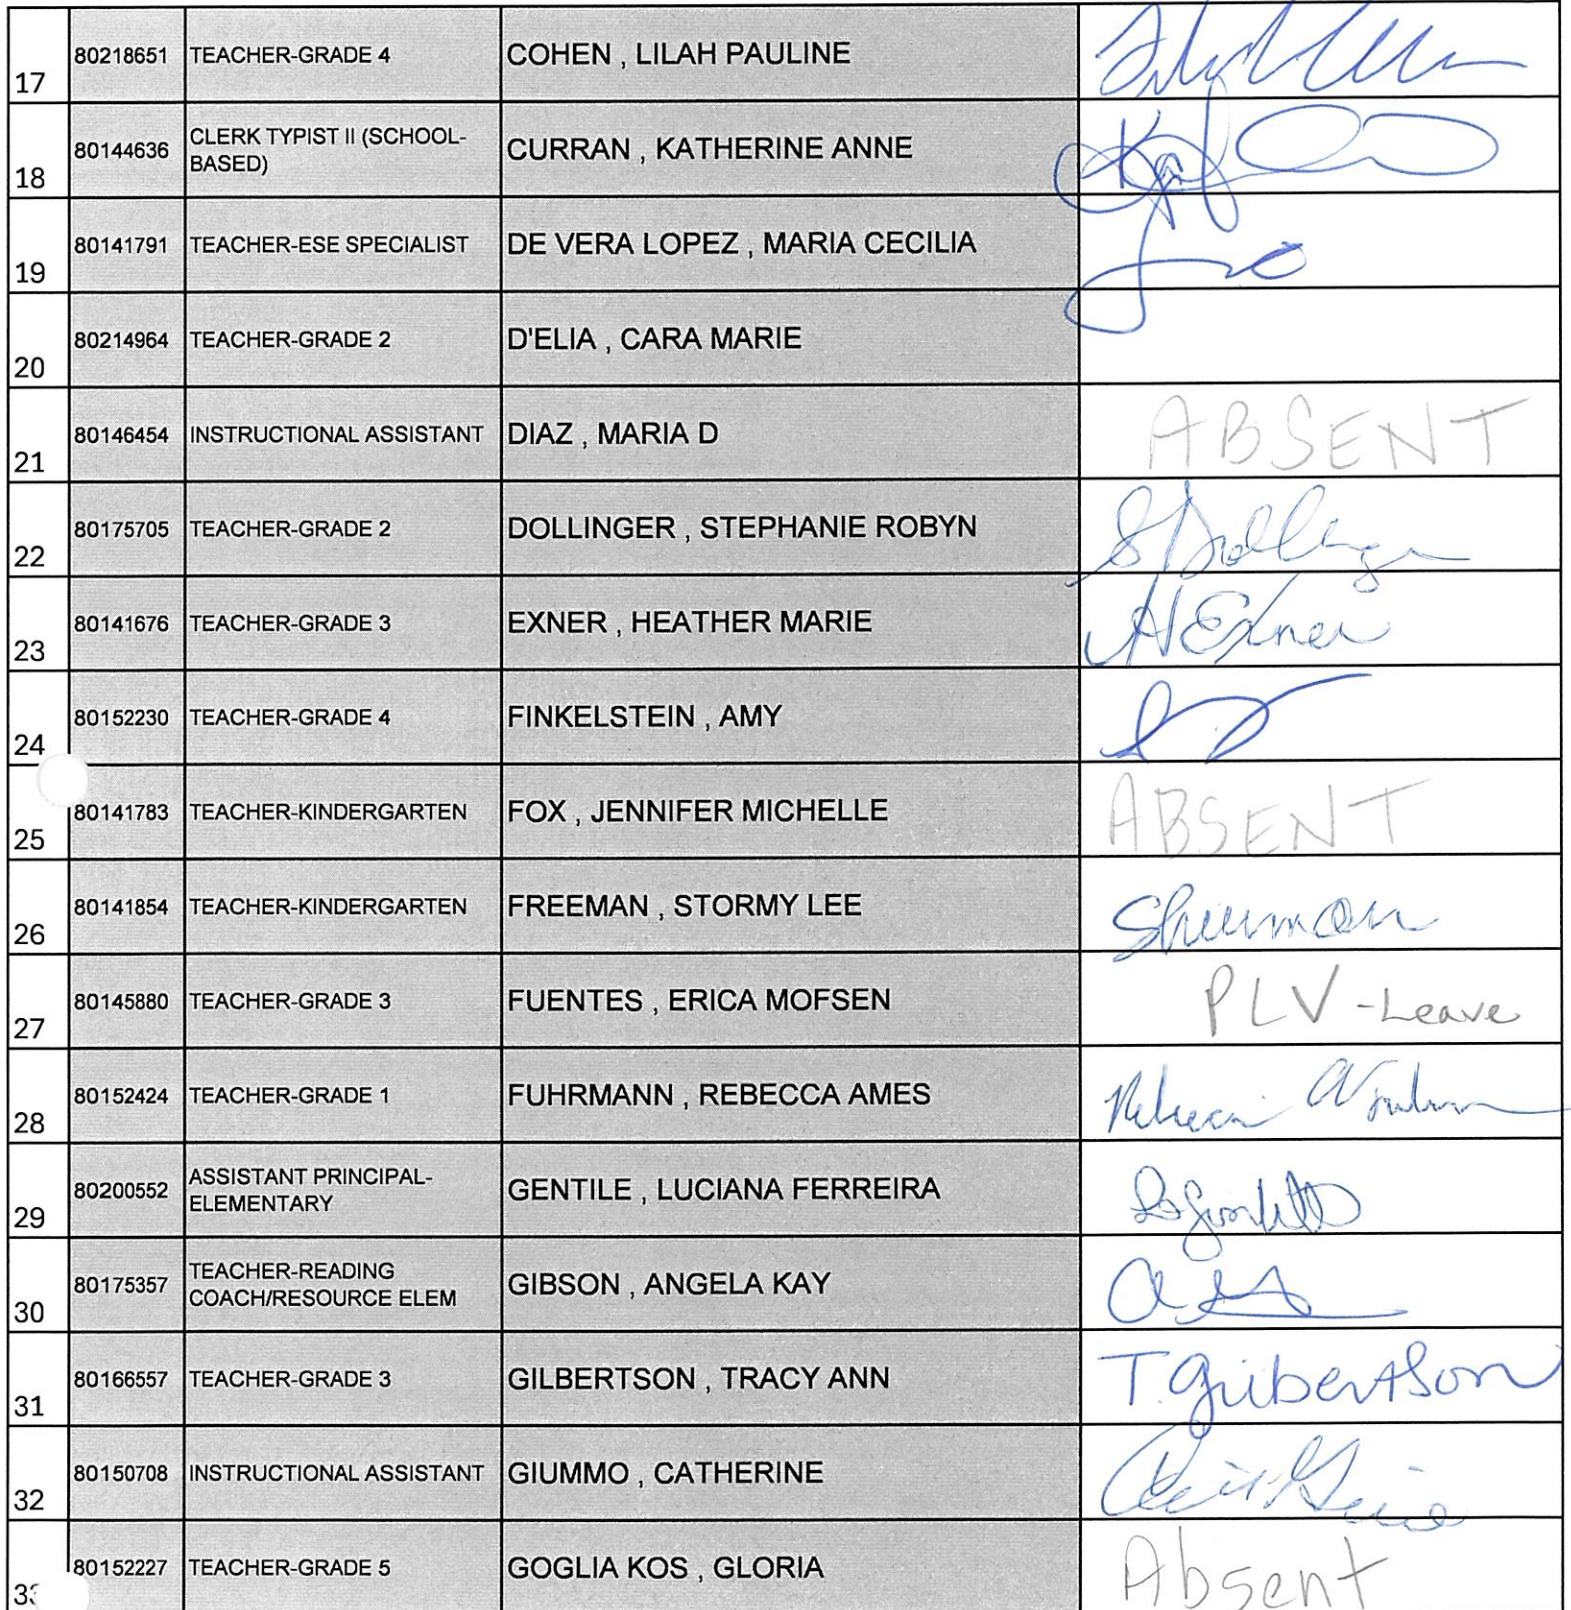 17 80218651 TEACHER-GRADE 4 COHEN , LILAH PAULINE
18 80144636 CLERK TYPIST II (SCHOOL-
BASED) CURRAN , KATHERINE ANNE
19 80141791 TEACHER-ESE SPECIALIST DE VERA LOPEZ , MARIA CECILIA
20 80214964 TEACHER-GRADE 2 D'ELIA , CARA MARIE
21 80146454 INSTRUCTIONAL ASSISTANT DIAZ , MARIA D ABSENT
22 80175705 TEACHER-GRADE 2 DOLLINGER , STEPHANIE ROBYN S Dollinger
23 80141676 TEACHER-GRADE 3 EXNER , HEATHER MARIE H Exner
24 80152230 TEACHER-GRADE 4 FINKELSTEIN , AMY
25 80141783 TEACHER-KINDERGARTEN FOX , JENNIFER MICHELLE ABSENT
26 80141854 TEACHER-KINDERGARTEN FREEMAN , STORMY LEE
27 80145880 TEACHER-GRADE 3 FUENTES , ERICA MOFSEN PLV - Leave
28 80152424 TEACHER-GRADE 1 FUHRMANN , REBECCA AMES
29 80200552 ASSISTANT PRINCIPAL-
ELEMENTARY GENTILE , LUCIANA FERREIRA
30 80175357 TEACHER-READING
COACH/RESOURCE ELEM GIBSON , ANGELA KAY
31 80166557 TEACHER-GRADE 3 GILBERTSON , TRACY ANN T. Gilbertson
32 80150708 INSTRUCTIONAL ASSISTANT GIUMMO , CATHERINE
33 80152227 TEACHER-GRADE 5 GOGLIA KOS , GLORIA Absent